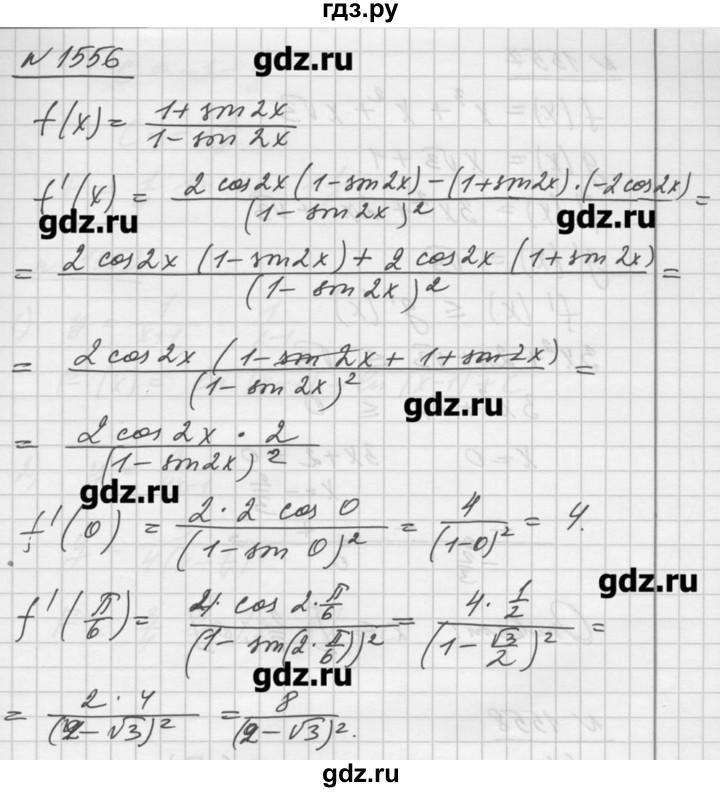 гдз.ру
N 1556
gdz.ru
f(x) = (1 + sin 2x) / (1 - sin 2x)
f'(x) = (2 cos 2x (1 - sin 2x) - (1 + sin 2x) · (-2 cos 2x)) / (1 - sin 2x)² =
gdz.ru gdz.ru
= (2 cos 2x (1 - sin 2x) + 2 cos 2x (1 + sin 2x)) / (1 - sin 2x)² =
= (2 cos 2x (1 - sin 2x + 1 + sin 2x)) / (1 - sin 2x)² =
gdz.ru
= (2 cos 2x · 2) / (1 - sin 2x)²
gdz.ru
f'(0) = (2 · 2 cos 0) / (1 - sin 0)² = 4 / (1 - 0)² = 4.
gdz.ru
f'(π/6) = (4 · cos 2 · π/6) / (1 - sin(2 · π/6))² = (4 · 1/2) / (1 - √3/2)² =
gdz.ru
= (2 · 4) / (2 - √3)² = 8 / (2 - √3)².
gdz.ru